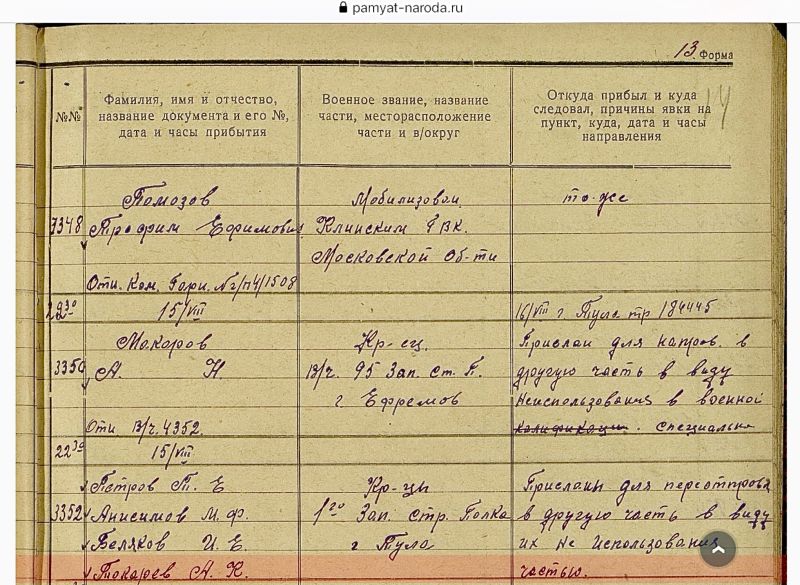 pamyat-naroda.ru
13. Форма
14
№№
Фамилия, имя и отчество,
название документа и его №,
дата и часы прибытия
Военное звание, название
части, месторасположение
части и в/округ
Откуда прибыл и куда
следовал, причины явки на
пункт, куда, дата и часы
направления
Помозов
Мобилизован
то-же
3348 Трофим Ефимович
Клинским ГВК.
Московской Об-ти
Отн. Ком. Горн. №2/п4/1508
22³⁰ 15/VIII
16/VIII г. Тула тр 184445
Макаров
Кр-ец.
Прислан для направ. в
3350 А. Н.
В/ч. 95 Зап. ст. П.
другую часть в виду
г. Ефремов
Неиспользования в военной
Отн В/ч. 4352.
специальн
22³⁰ 15/VIII
Петров Т. Е
Кр-цы
Присланы для переотправ
3352 Анисимов М. Ф.
1го Зап. стр. Полка
в другую часть в виду
Беляков И. Е
г Тула
их не использования
Токарев А. К.
частью.